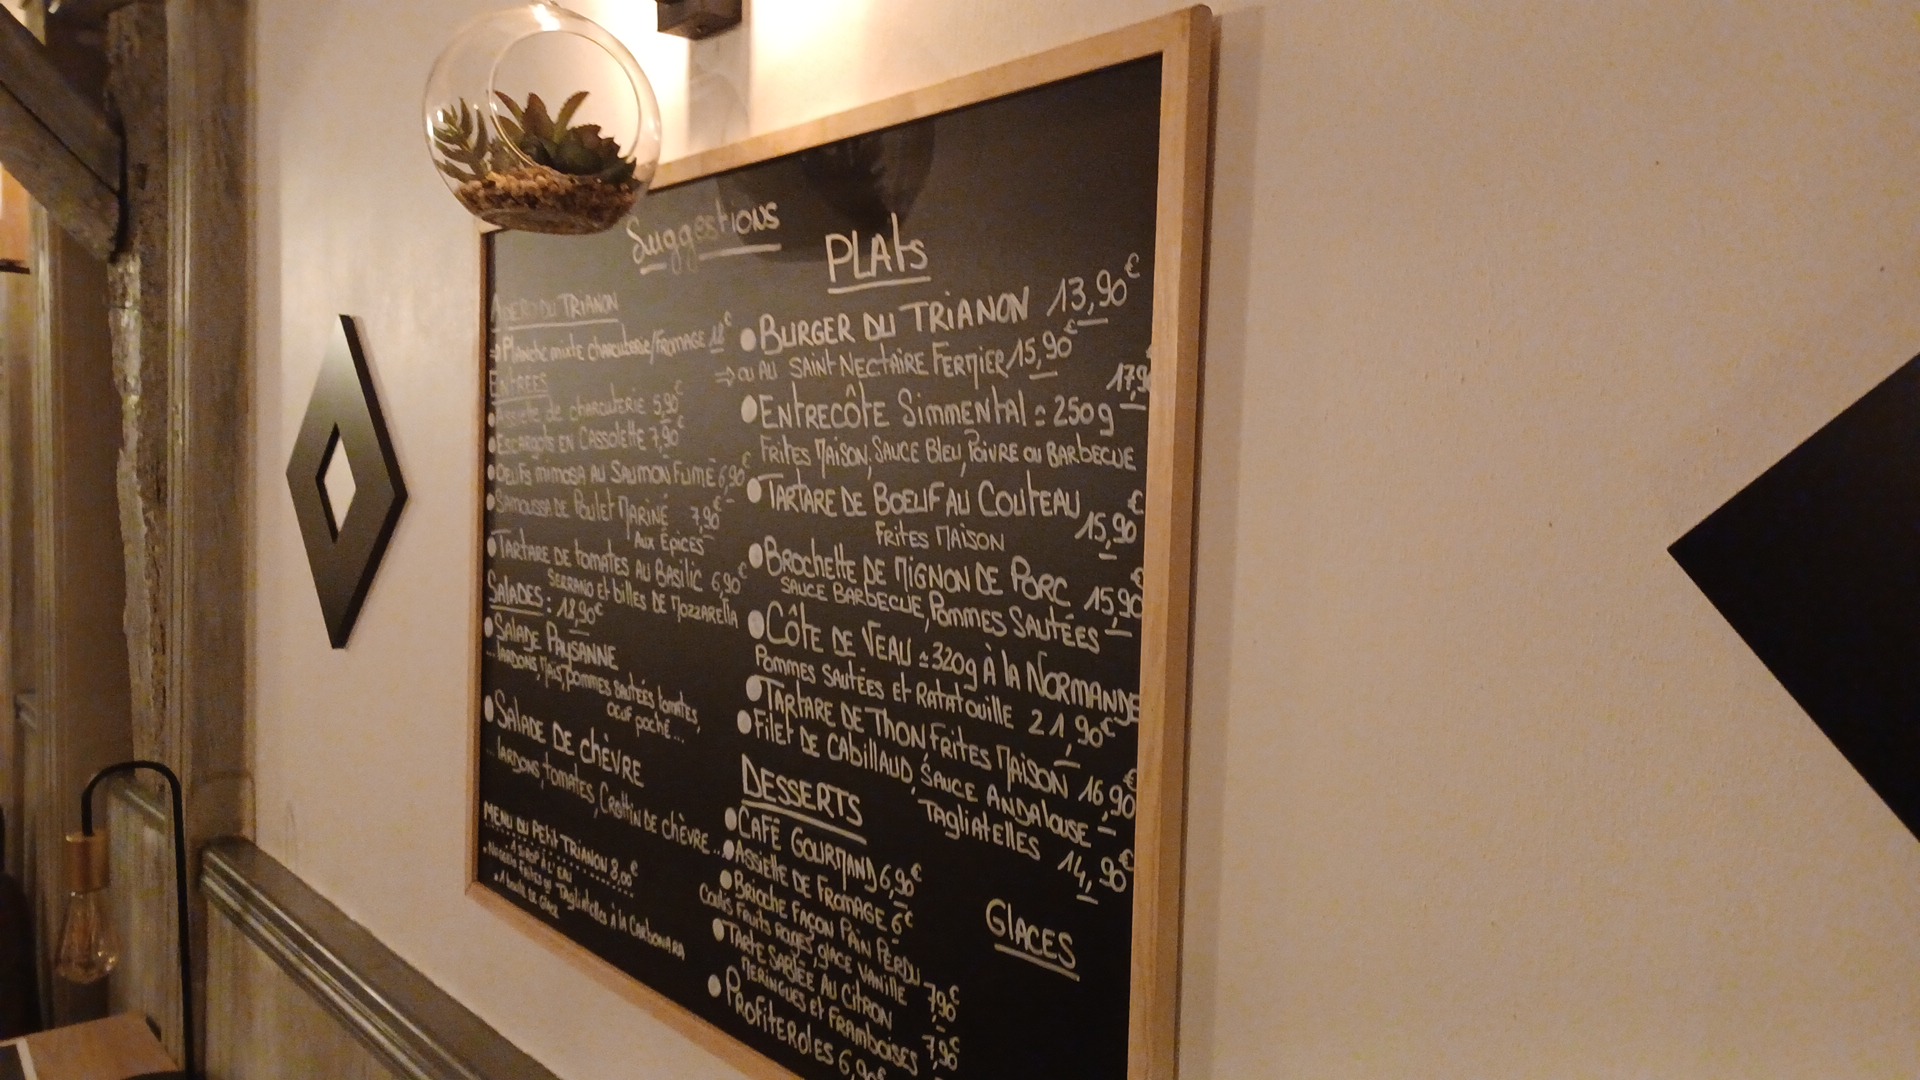 Suggestions
APERO DU TRIANON
⇒ Planche mixte charcuterie/Fromage 18€
ENTREES
• Assiette de charcuterie 5,90€
• Escargots en Cassolette 7,90€
• Oeufs mimosa au Saumon Fumé 6,90€
• Samoussa de Poulet Mariné 7,90€
Aux Épices
• Tartare de tomates au Basilic 6,90€
Serrano et billes de Mozzarella
Salades : 12,90€
• Salade Paysanne
... lardons, Maïs, pommes sautées tomates,
œuf poché ...
• Salade de chèvre
... lardons, tomates, Crottin de chèvre ...
Menu du Petit Trianon 8,00€
• 1 Sirop à l'eau
• Nuggets Frites ou Tagliatelles à la Carbonara
• 1 boule de glace
PLAts
• Burger du Trianon 13,90€
⇒ ou au Saint Nectaire Fermier 15,90€
• Entrecôte Simmental ± 250g 17,9
Frites Maison, Sauce Bleu, Poivre ou Barbecue
• Tartare de Boeuf au Couteau 15,90€
Frites Maison
• Brochette de Mignon de Porc 15,90€
Sauce Barbecue, Pommes Sautées
• Côte de Veau ± 320g à la Normande
Pommes sautées et Ratatouille 21,90€
• Tartare de Thon Frites Maison 16,90€
• Filet de Cabillaud, Sauce Andalouse
Tagliatelles 14,90€
Desserts
• Café Gourmand 6,90€
• Assiette de Fromage 6€
• Brioche Façon Pain Perdu
Coulis Fruits rouges, glace Vanille 7,90€
• Tarte Sablée au Citron
Meringues et Framboises 7,90€
• Profiteroles 6,90€
Glaces